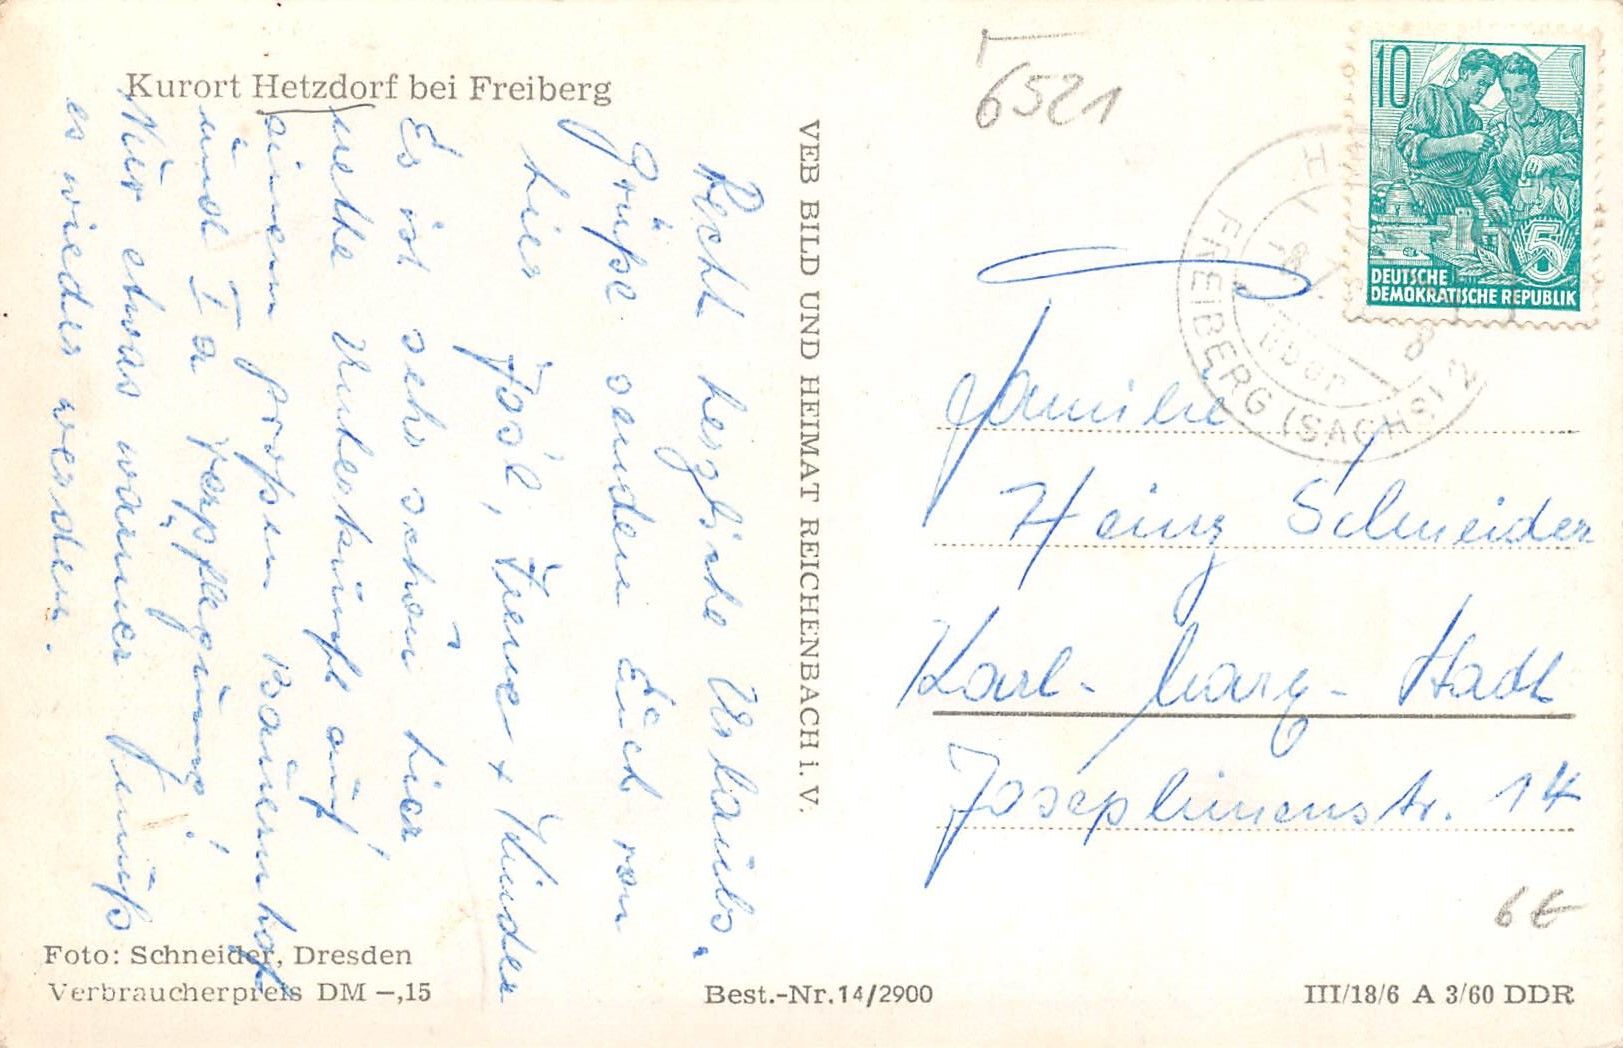 Kurort Hetzdorf bei Freiberg
Recht herzliche Urlaubs-
Grüße senden Euch von
hier Kinder
Es ist sehr schön hier
nette Unterkunft auf
einem großen Bauernhof
und Ia Verpflegung!
Nur etwas wärmer muß
es wieder werden.
Foto: Schneider, Dresden
Verbraucherpreis DM –,15
VEB BILD UND HEIMAT REICHENBACH i. V.
Best.-Nr. 14/2900
6521
10
5
DEUTSCHE
DEMOKRATISCHE REPUBLIK
über
FREIBERG (SACHS) 2
Familie
Heinz Schneider
Karl-Marx-Stadt
Josephinenstr. 14
6€
III/18/6 A 3/60 DDR